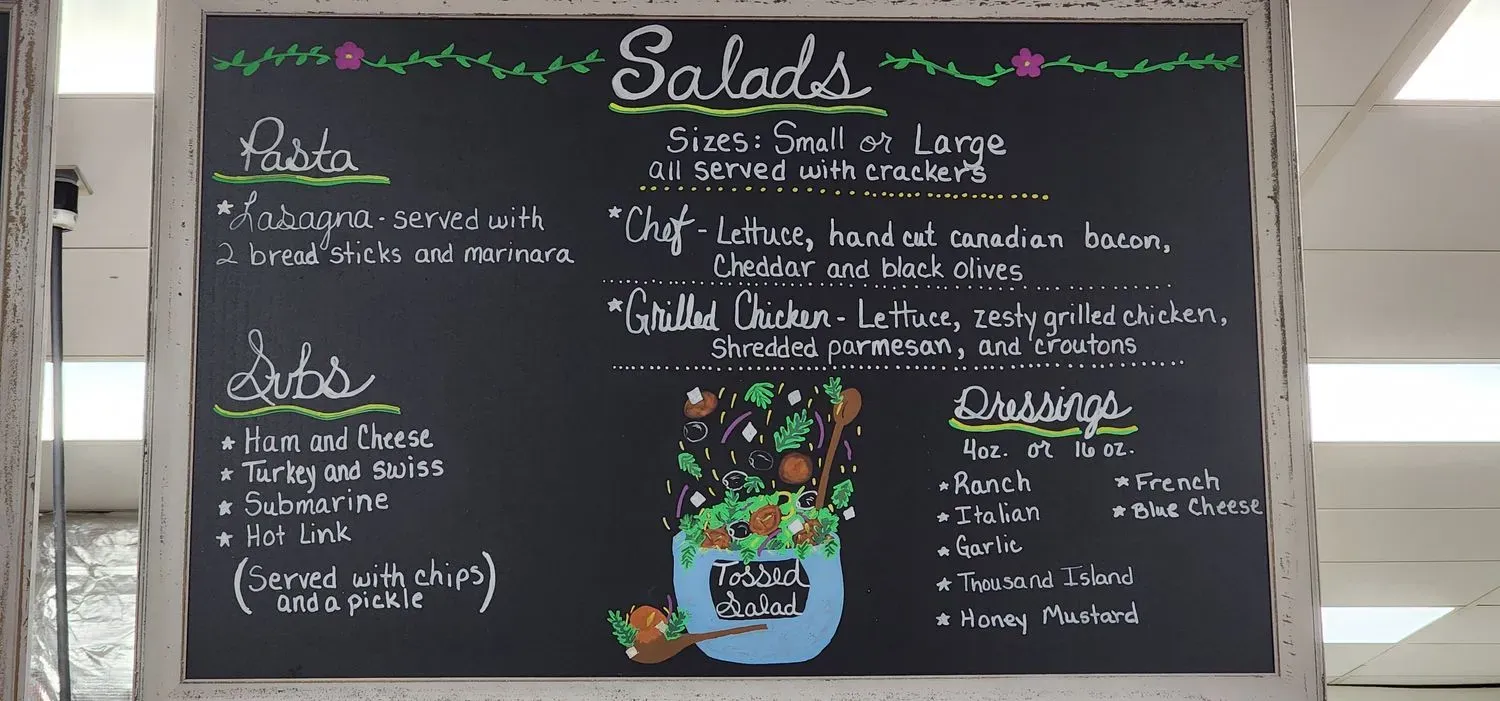 Salads
Sizes: Small or Large
all served with crackers
*Chef - Lettuce, hand cut canadian bacon,
Cheddar and black olives
*Grilled Chicken - Lettuce, zesty grilled chicken,
shredded parmesan, and croutons
Pasta
*Lasagna - served with
2 bread sticks and marinara
Subs
* Ham and Cheese
* Turkey and swiss
* Submarine
* Hot Link
(Served with chips
and a pickle)
Tossed
Salad
Dressings
4oz. or 16 oz.
* Ranch
* Italian
* Garlic
* Thousand Island
* Honey Mustard
* French
* Blue Cheese